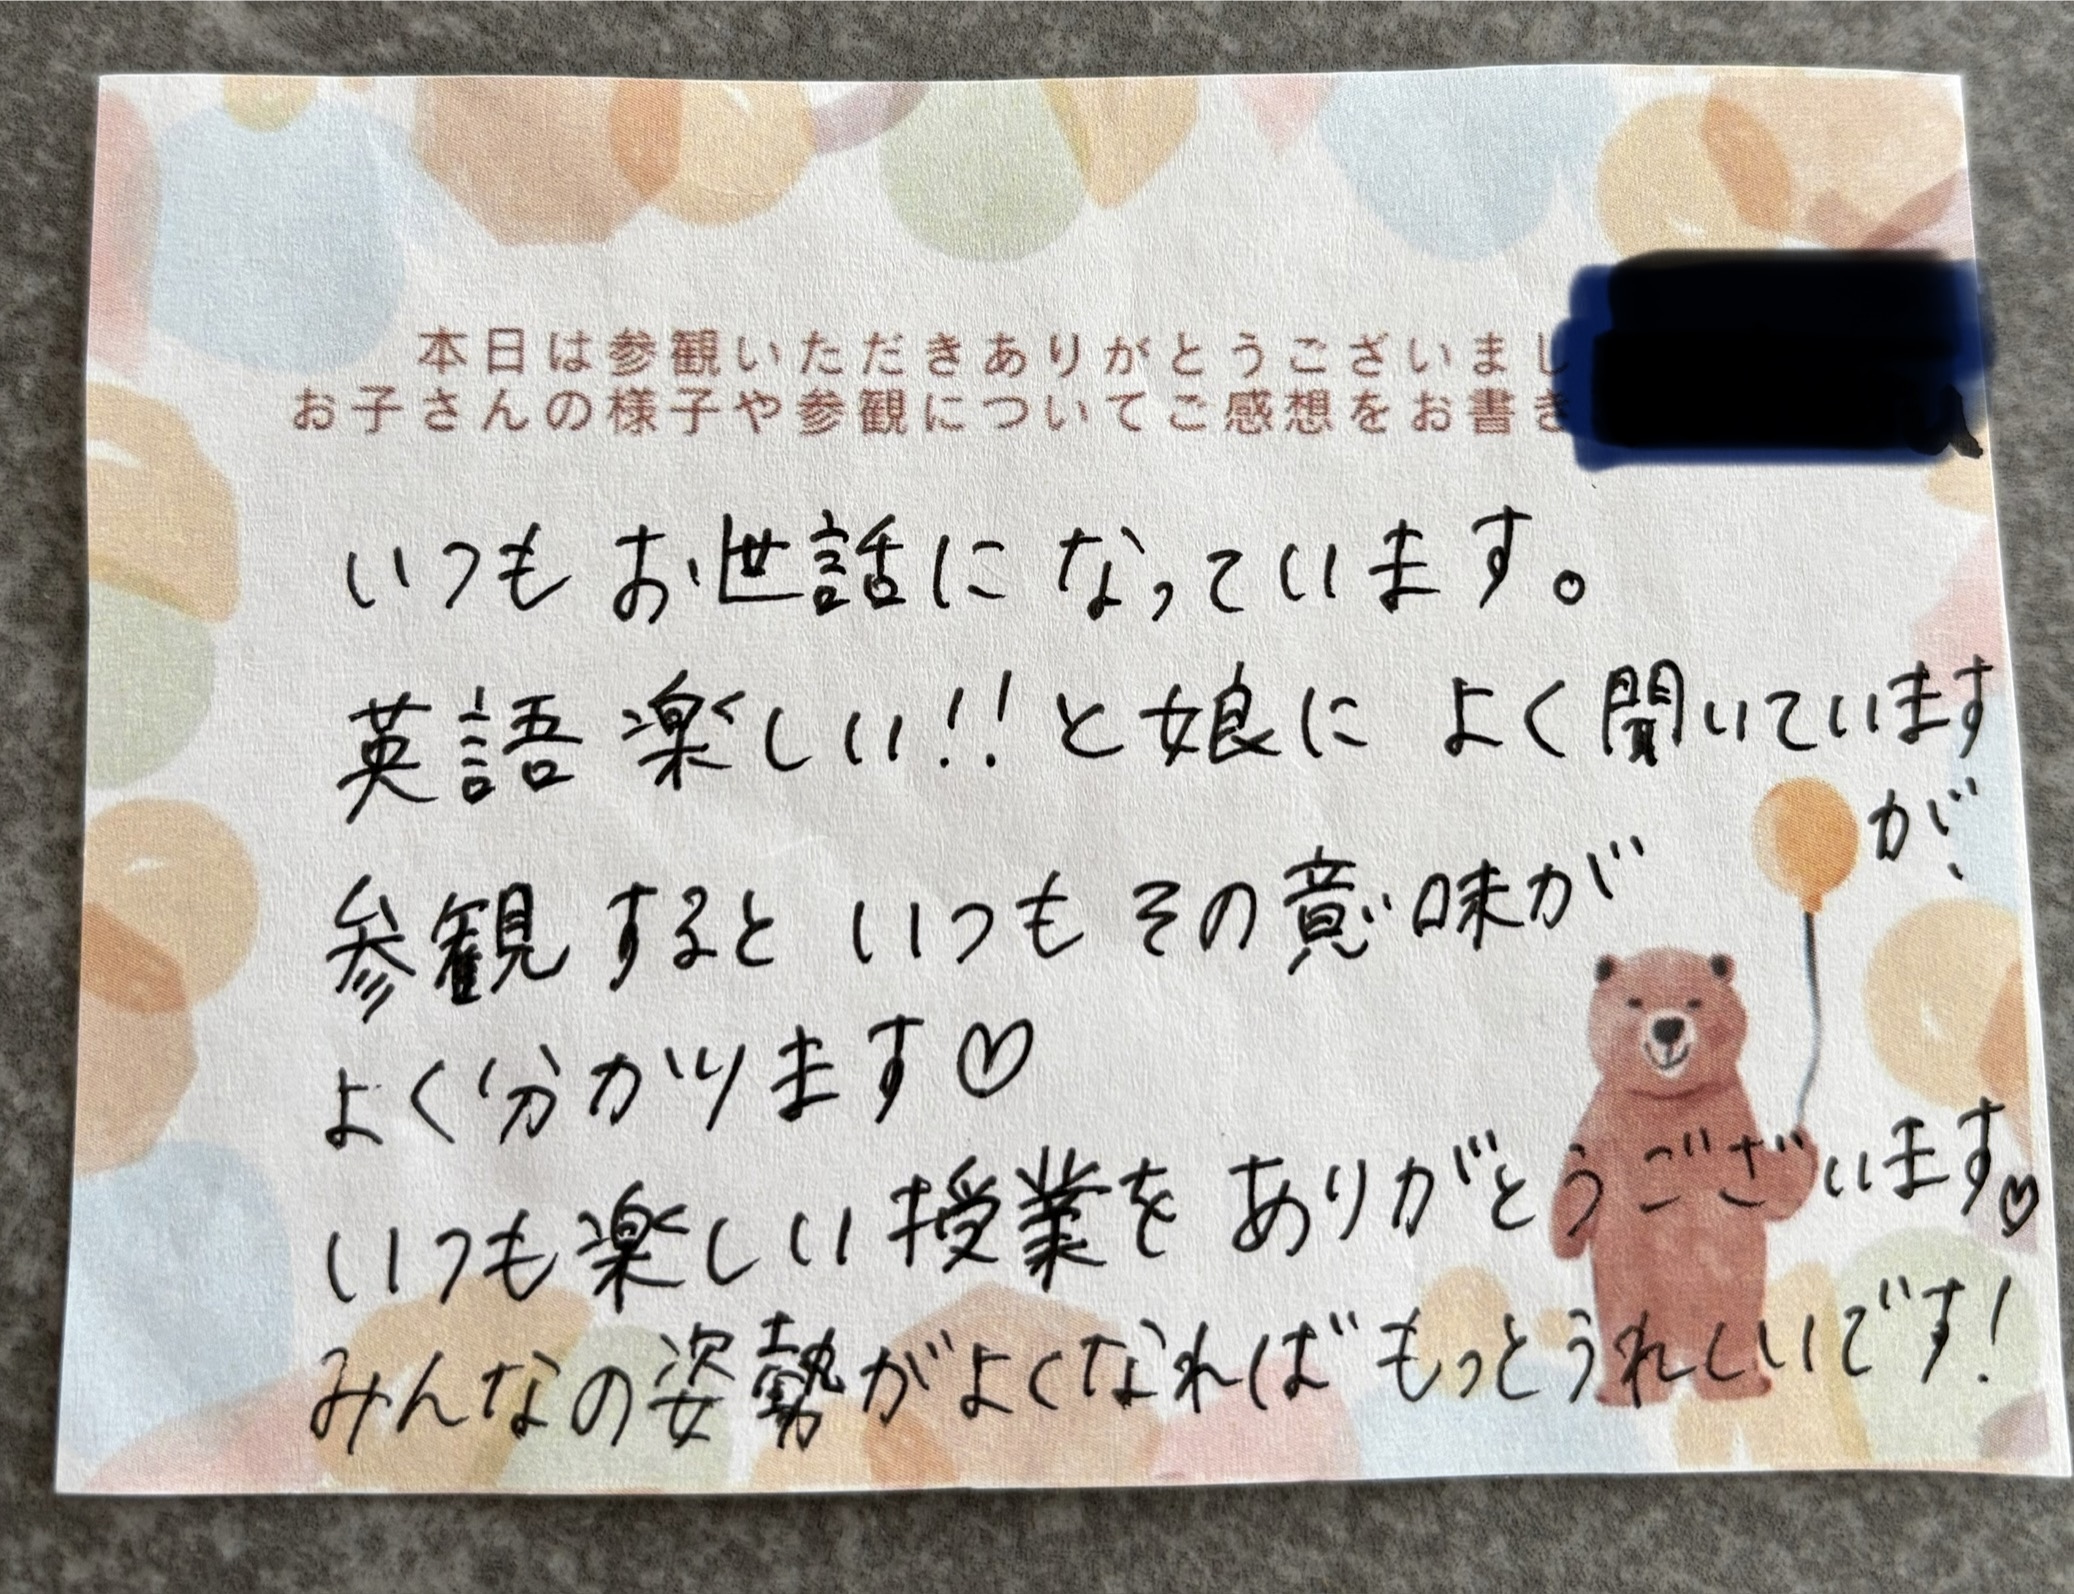 本日は参観いただきありがとうございまし
お子さんの様子や参観についてご感想をお書き
いつもお世話になっています。
英語楽しい!!と娘によく聞いています
が、
参観するといつもその意味が
よく分かります♡
いつも楽しい授業をありがとうございます♡
みんなの姿勢がよくなればもっとうれしいです!